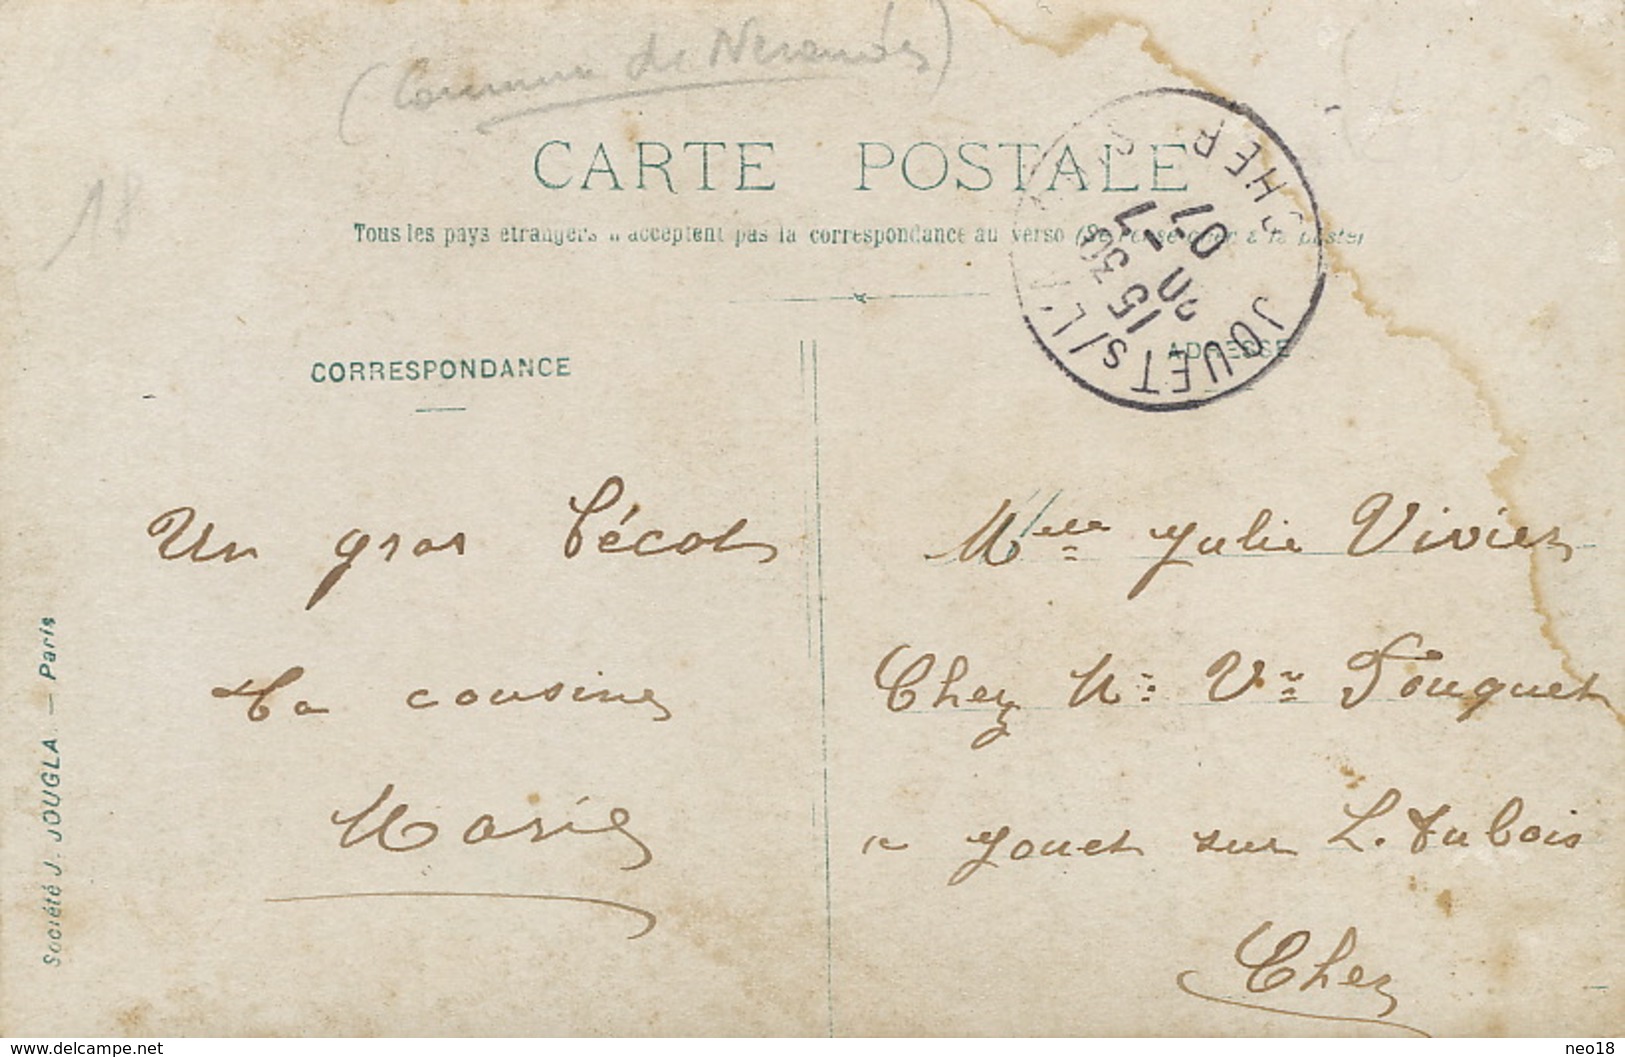 (Commune de Nerondes)
18
CARTE POSTALE
Tous les pays étrangers n'acceptent pas la correspondance au verso (Se renseigner à la poste)
CORRESPONDANCE
ADRESSE
JOUET S/L'A
CHER
15 30
20 -7
07
Un gros bécot
Ta cousine
Marie
Melle Julie Vivier
Chez Me Vve Fouquet
a Jouet sur L. Aubois
Cher
Société J. JOUGLA — Paris
www.delcampe.net
neo18